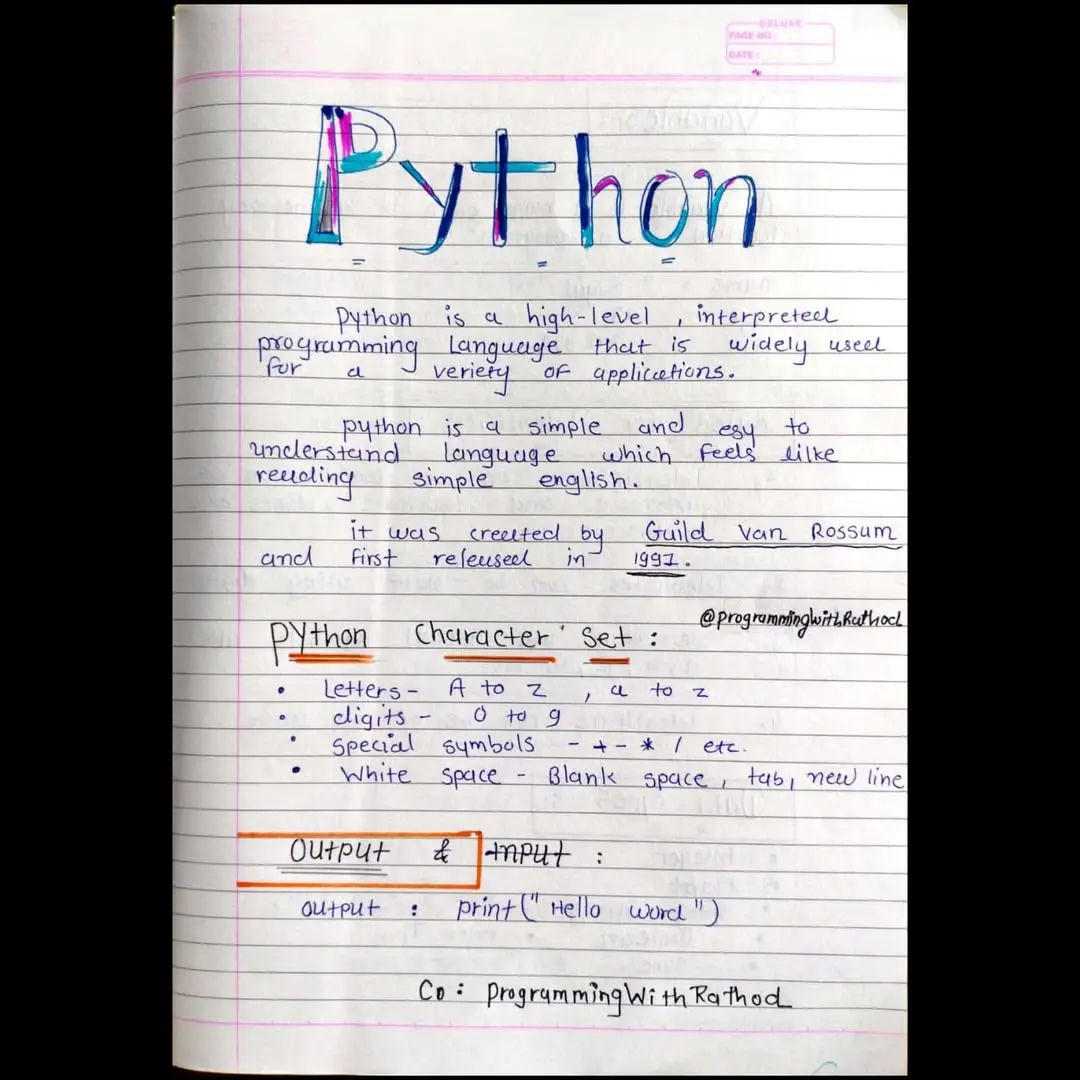 DELUXE
PAGE NO.:
DATE:
Python
Python is a high-level , interpreted
programming Language that is widely used
for a veriety of applications.
python is a simple and esy to
understand language which feels lilke
reading simple english.
it was created by Guild van Rossum
and first released in 1991.
@programmingwithRathod
Python Character set :
• Letters - A to Z , a to z
• digits - 0 to 9
• special symbols - + - * / etc.
• White space - Blank space, tab, new line
Output & Input :
output : print("Hello word")
Co : ProgrammingWithRathod